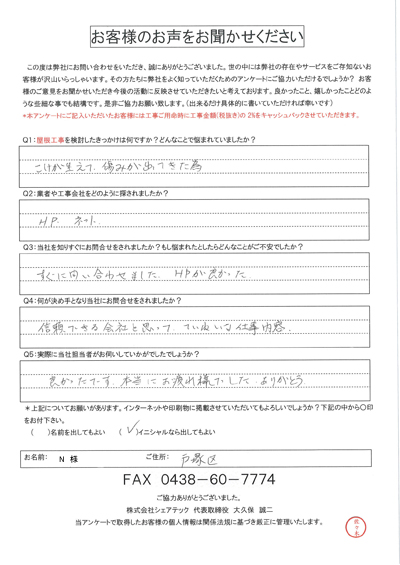 お客様のお声をお聞かせください
この度は弊社にお問い合わせをいただき、誠にありがとうございました。世の中には弊社の存在やサービスをご存知ないお
客様が沢山いらっしゃいます。その方たちに弊社をよく知っていただくためのアンケートにご協力いただけるでしょうか？ お客
様のご意見をお聞かせいただき今後の活動に反映させていただきたいと考えております。良かったこと、嬉しかったことどのよ
うな些細な事でも結構です。是非ご協力お願い致します。（出来るだけ具体的に書いていただければ幸いです）
*本アンケートにご記入いただいたお客様には工事ご用命時に工事金額(税抜き)の 2%をキャッシュバックさせていただきます。
Q1:屋根工事を検討したきっかけは何ですか？どんなことで悩まれていましたか？
こけが生えて、傷みが出てきた為
Q2:業者や工事会社をどのように探されましたか？
HP. ネット.
Q3:当社を知りすぐにお問合せをされましたか？もし悩まれたとしたらどんなことがご不安でしたか？
すぐに問い合わせました. HPが良かった
Q4:何が決め手となり当社にお問合せをされましたか？
信頼できる会社と思って、ていねいな仕事内容.
Q5:実際に当社担当者がお伺いしていかがでしたでしょうか？
良かったです. 本当にお疲れ様でした. ありがとう.
＊上記についてお願いがあります。インターネットや印刷物に掲載させていただいてもよろしいでしょうか？下記の中から〇印
をお付下さい。
（　）名前を出してもよい　（✓）イニシャルなら出してもよい
お名前： N 様　ご住所： 戸塚区
FAX 0438-60-7774
ご協力ありがとうございました。
株式会社シェアテック 代表取締役 大久保 誠二
当アンケートで取得したお客様の個人情報は関係法規に基づき厳正に管理いたします。
佐々木